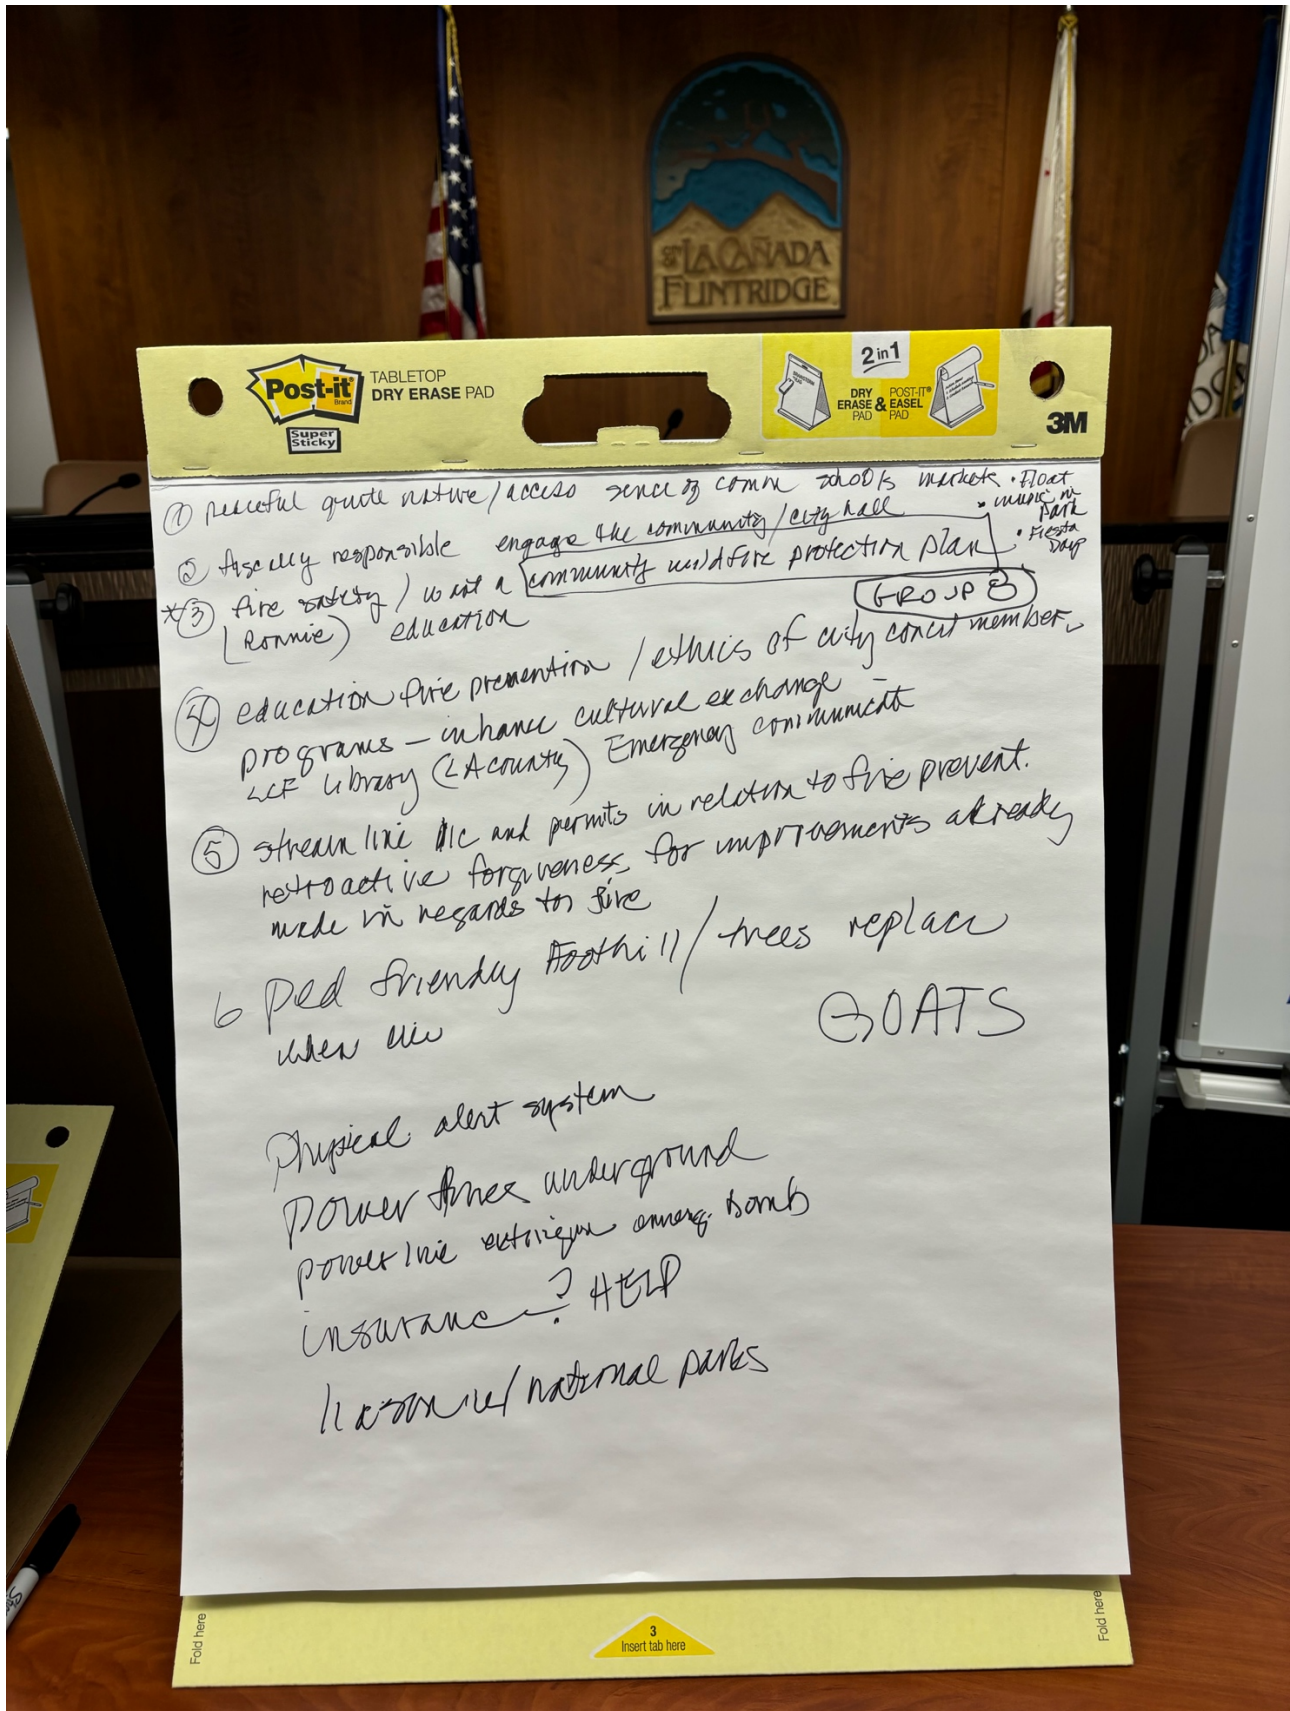 LA CAÑADA
FLINTRIDGE
Post-it
Brand
Super
Sticky
TABLETOP
DRY ERASE PAD
2 in 1
DRY
ERASE
PAD
&
POST-IT®
EASEL
PAD
3M
① peaceful quite native/access sence of comm schools markets • Float
• music in
Park
• Fiesta
Days
② fiscally responsible engage the community/city hall
*③ fire safety / want a community wildfire protection plan
(Ronnie) education
GROUP 8
④ education fire prevention / ethics of city concil member
programs – inhance cultural exchange –
LCF Library (LA county) Emergency communicat
⑤ stream line and permits in relation to fire prevent.
retroactive forgiveness for improvements already
made in regards to fire
6 Ped friendly Foothill/trees replace
when die
GOATS
Physical alert system
Power lines underground
power line emerg. bomb
insurance ? HELP
liason w/ national parks
Fold here
3
Insert tab here
Fold here